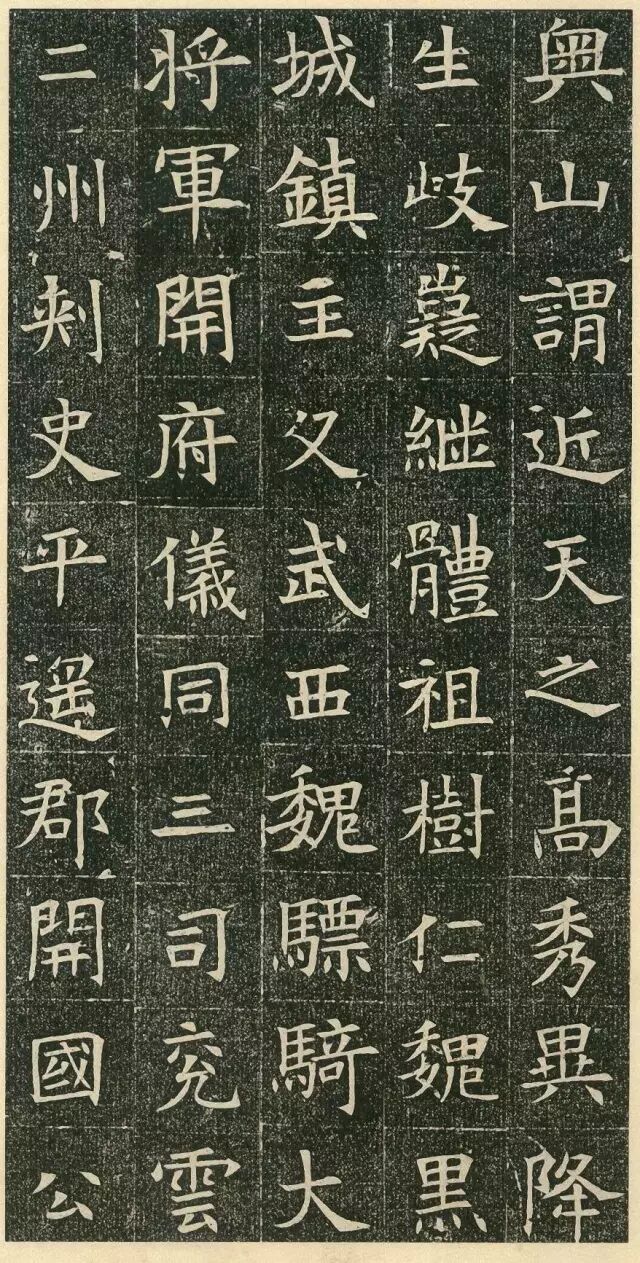 輿山謂近天之高秀異降
生岐嶷継體祖樹仁魏黑
城鎮主父武西魏驃騎大
将軍開府儀同三司兖雲
二州刺史平遥郡開國公